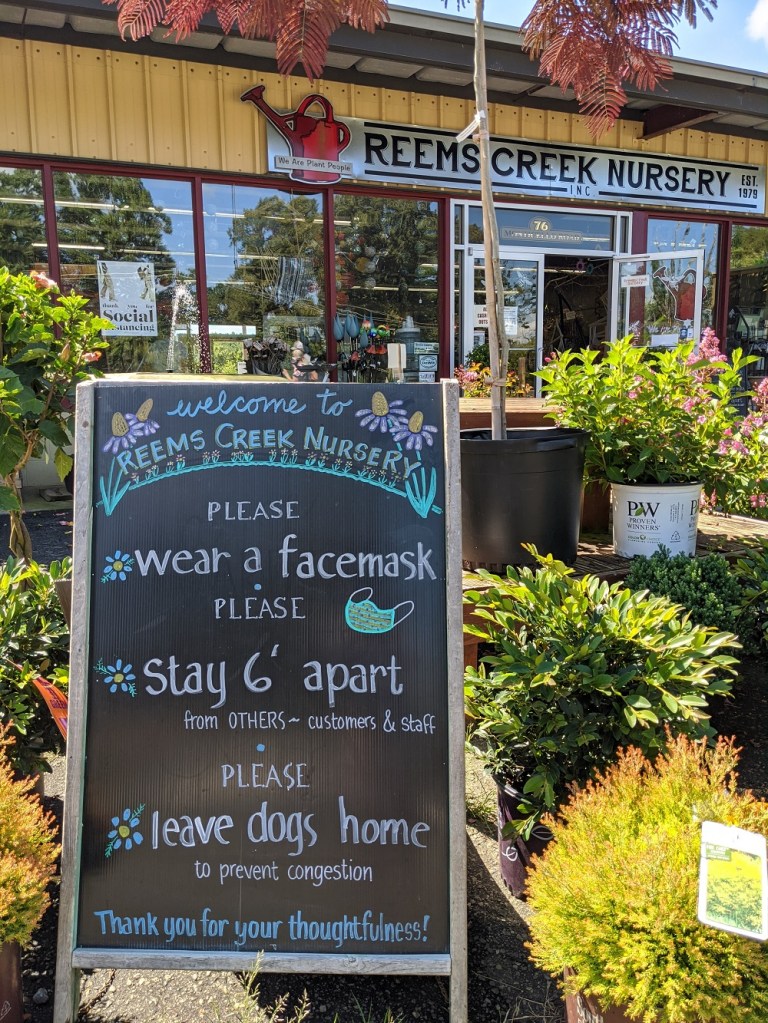 We Are Plant People
REEMS CREEK NURSERY
INC
EST.
1979
76
thank you for
Social
Distancing
welcome to
REEMS CREEK NURSERY
PLEASE
wear a facemask
PLEASE
stay 6' apart
from OTHERS~ customers & staff
PLEASE
leave dogs home
to prevent congestion
Thank you for your thoughtfulness!
PW
PROVEN
WINNERS